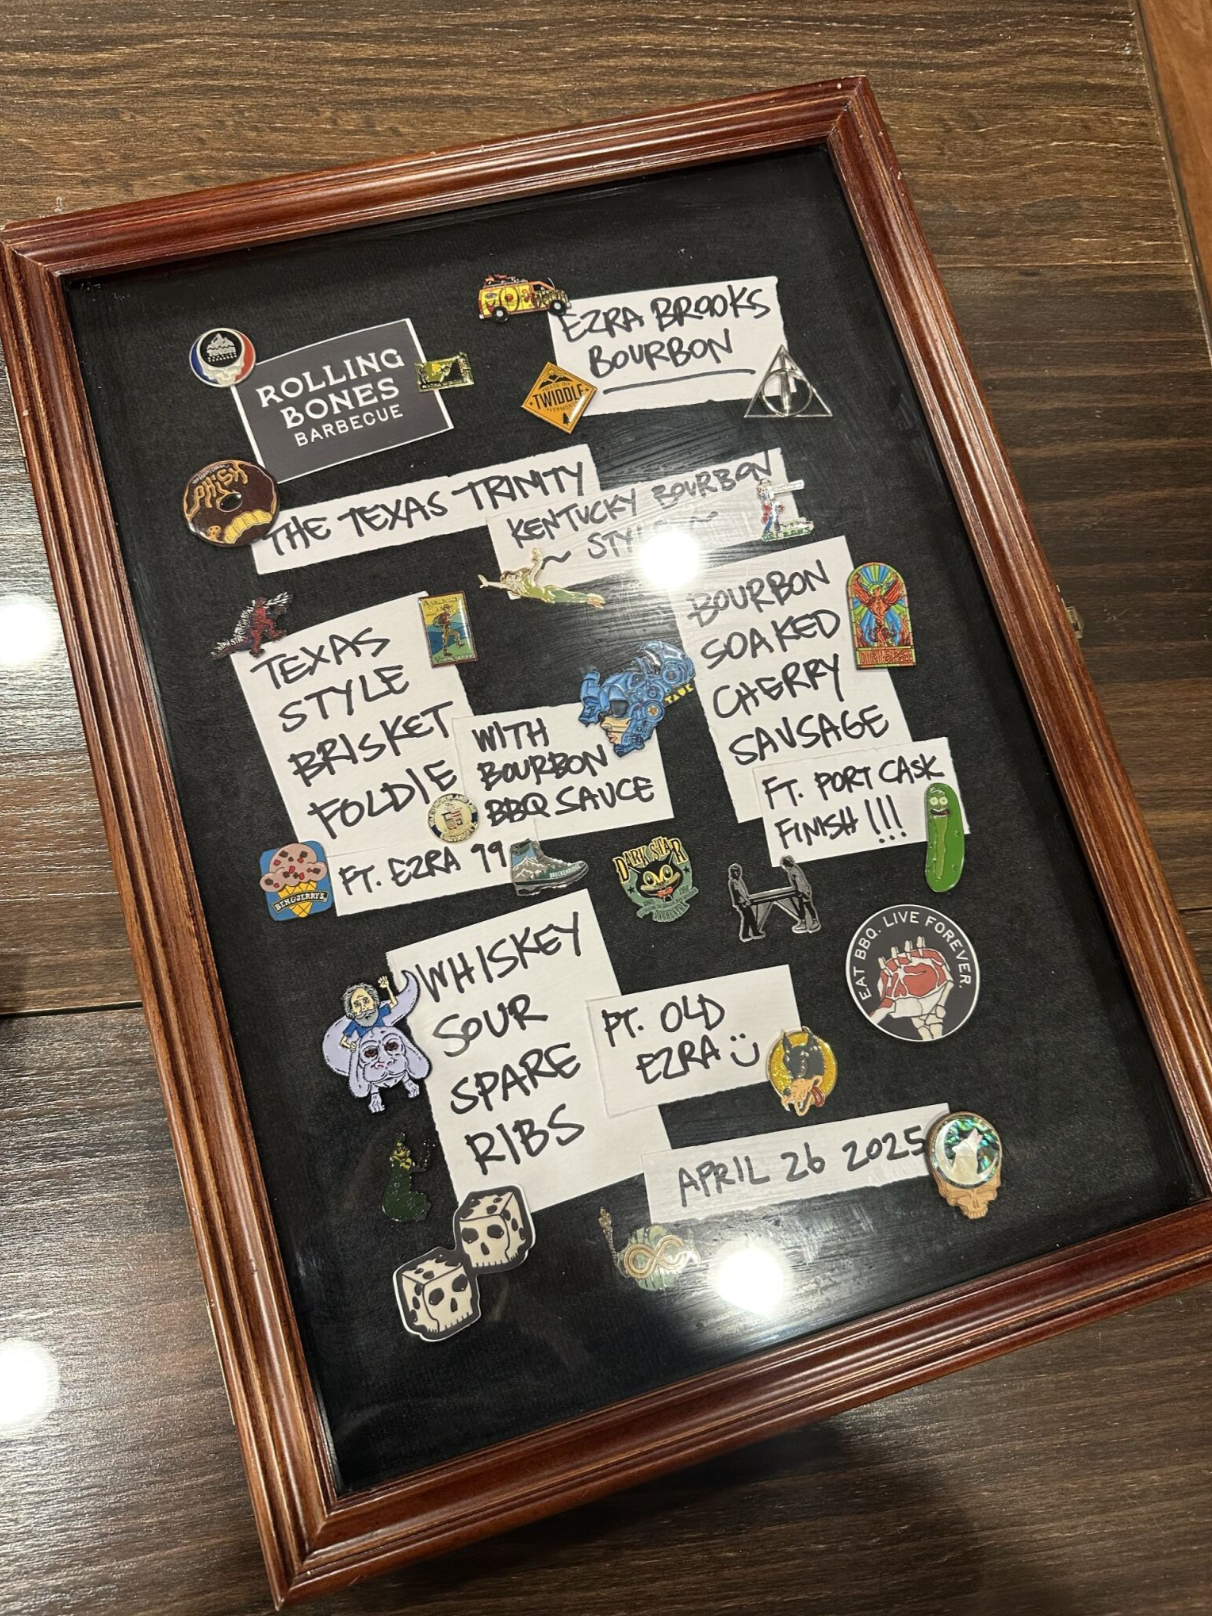 ROLLING
BONES
BARBECUE
EZRA BROOKS
BOURBON
TWIDDLE
PHISH
THE TEXAS TRINITY
KENTUCKY BOURBON
~ STYLE ~
TEXAS
STYLE
BRISKET
FOLDIE
WITH
BOURBON
BBQ SAUCE
FT. EZRA 99
BOURBON
SOAKED
CHERRY
SAUSAGE
FT. PORT CASK
FINISH!!!
BEN & JERRY'S
DARK STAR
ORCHESTRA
EAT BBQ. LIVE FOREVER.
WHISKEY
SOUR
SPARE
RIBS
FT. OLD
EZRA
APRIL 26 2025